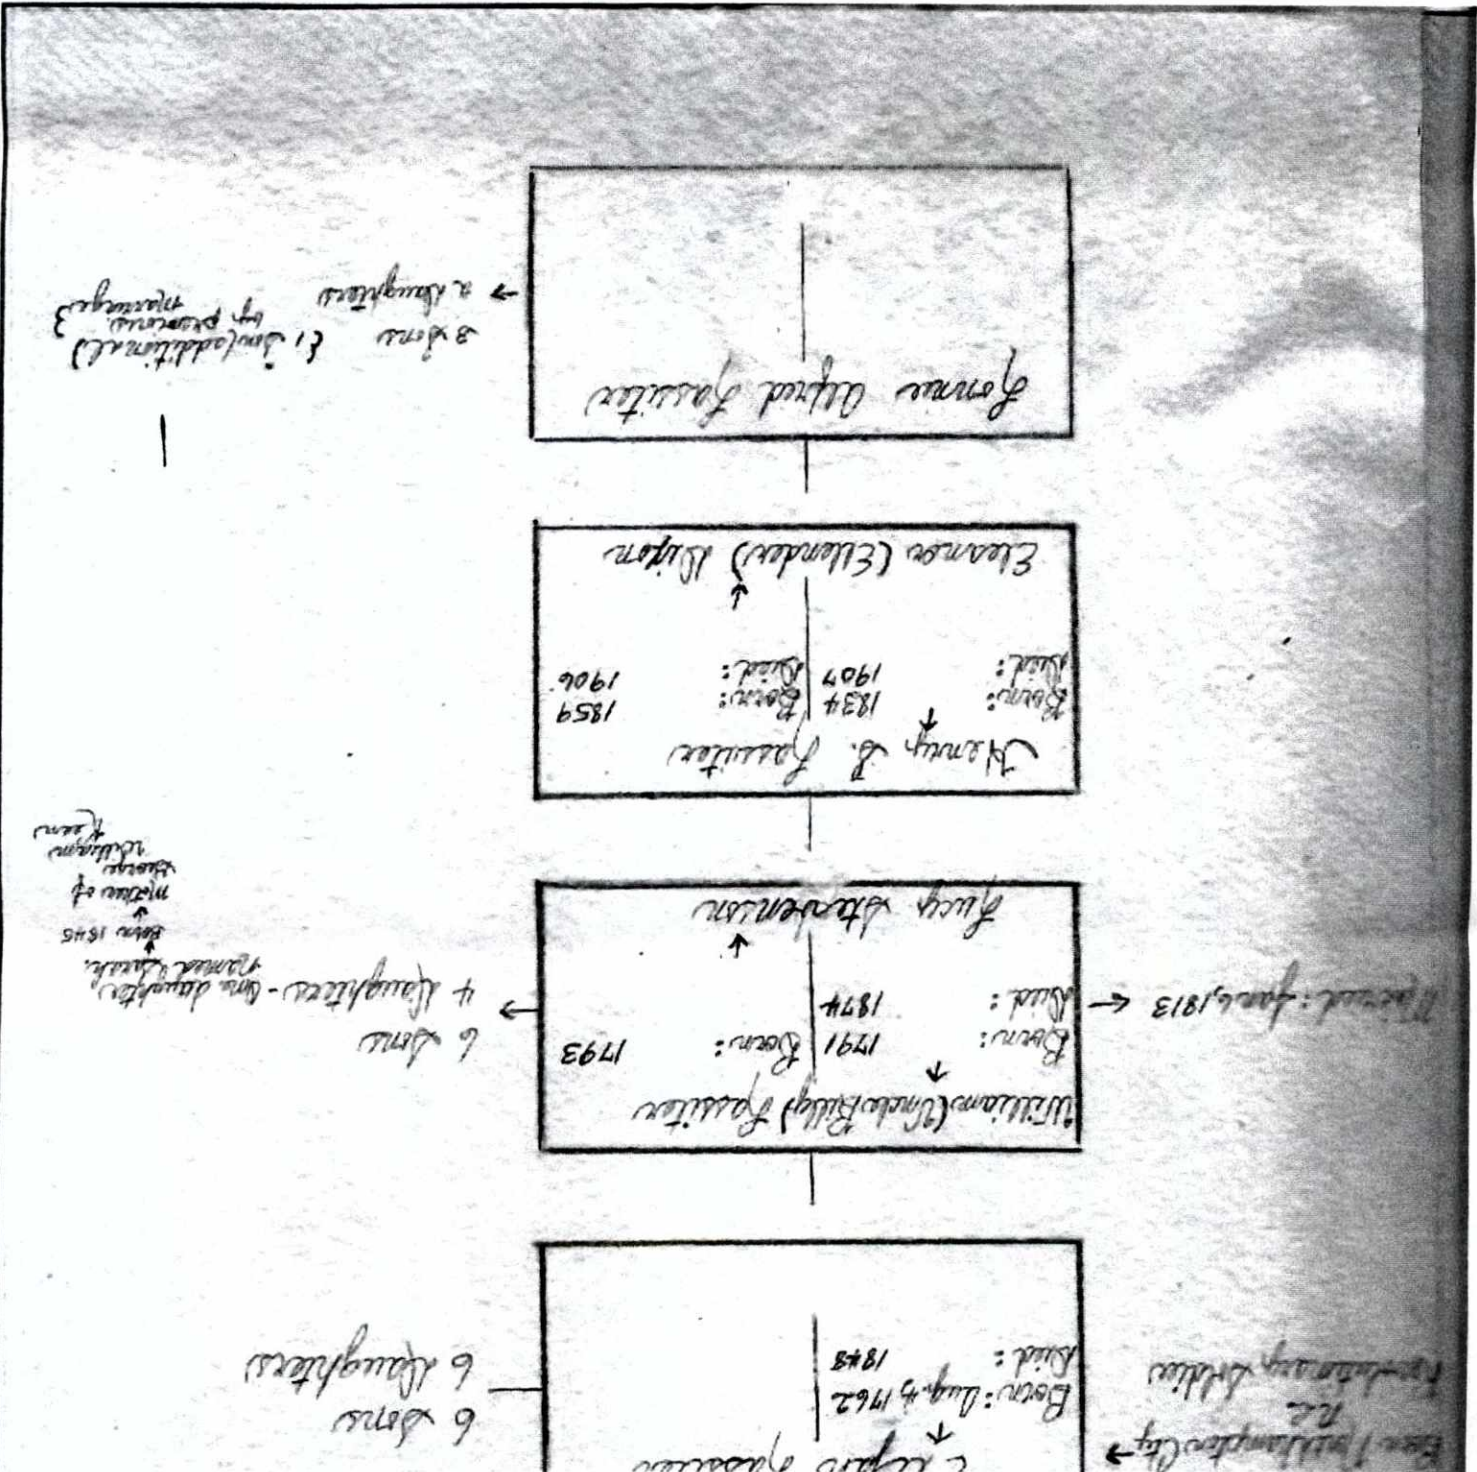 Elijah Lassiter
Born Northampton Cty
N.C.
Revolutionary Soldier
Born: Aug. 4, 1762
Died: 1848
6 Sons
6 Daughters
William (Uncle Billy) Lassiter
Born: 1791 Born: 1793
Died: 1874
Married: Jan. 6, 1813
Lucy Stevenson
6 Sons
4 Daughters - One daughter,
named Sarah.
Born 1845
Mother of
George
William
Keen
Henry B. Lassiter
Born: 1834 Born: 1859
Died: 1907 Died: 1906
Eleanor (Ellender) Dixon
Lonnie Alfred Lassiter
3 Sons {1 Son (additional)
by previous
marriage}
2 Daughters